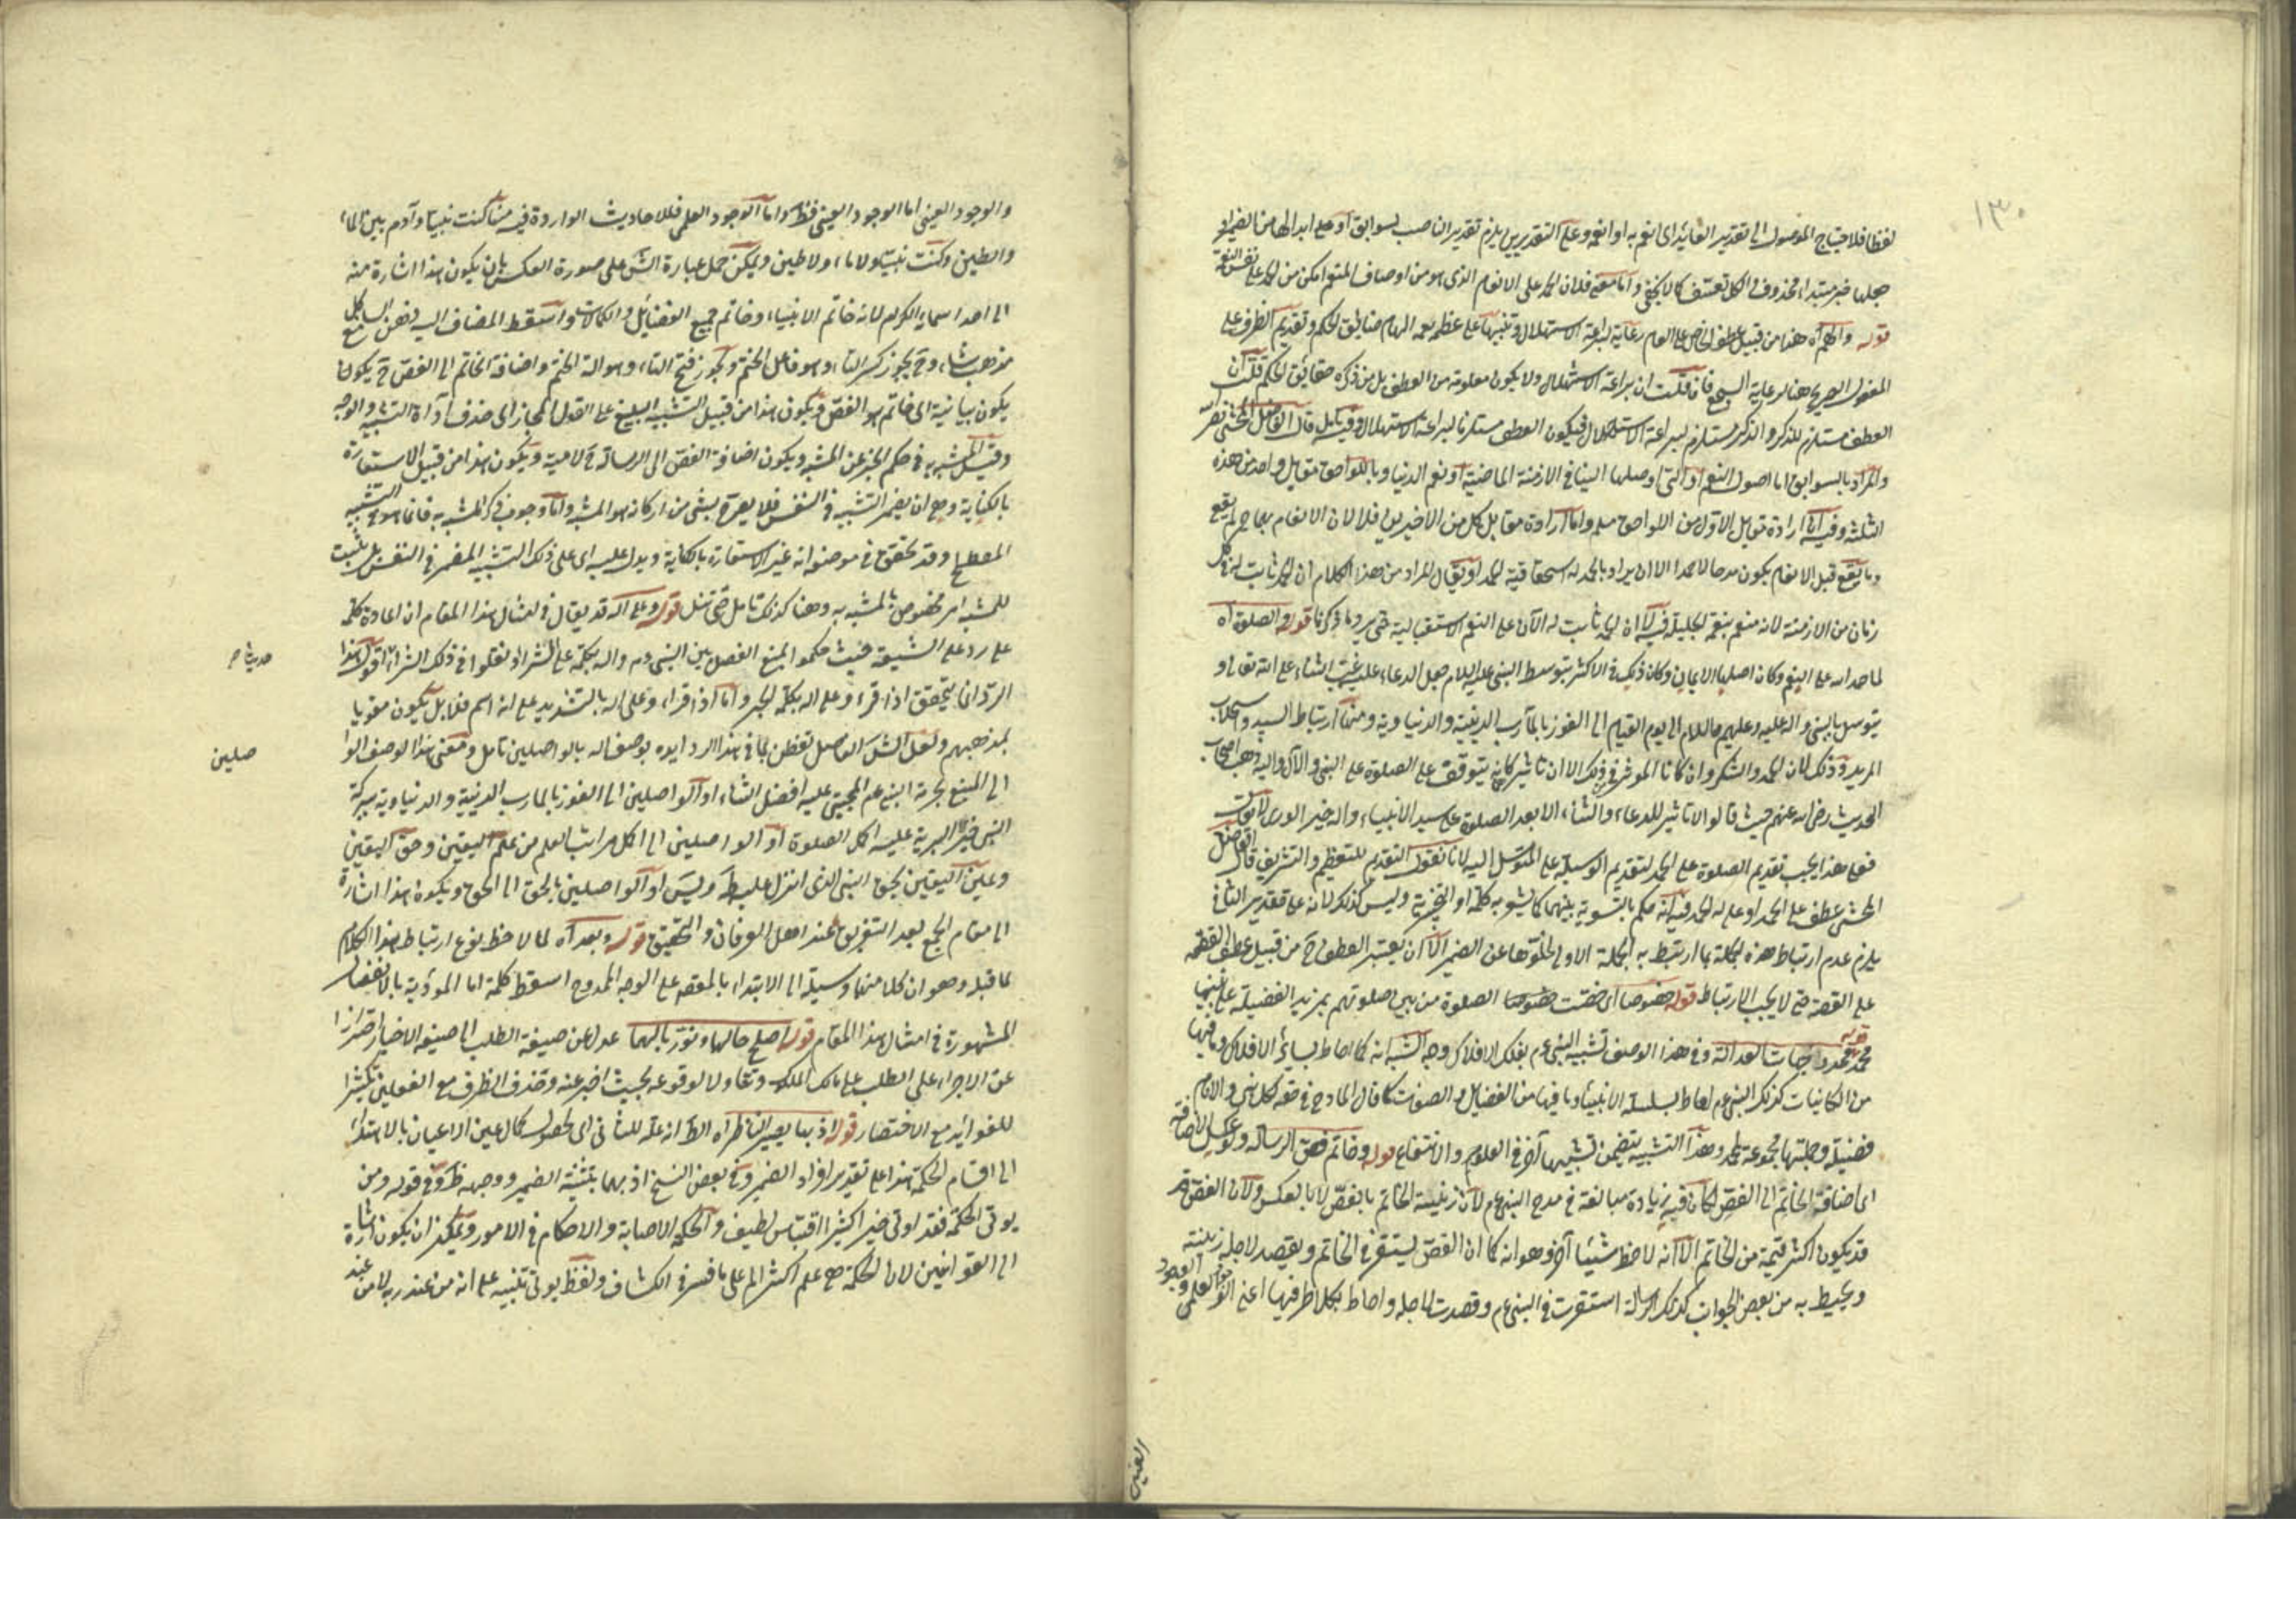 ١٣٠
لفظا فلاحتياج الموصول الى تقدير العائد اى انعم به او انعمه وعلى التقديرين يلزم تقدير ان صب لسوابق او على ابدالها من الضمير او
جعلها خبر مبتداء محذوف والكل تعسف كما لا يخفى واما معنى فلان الحمد على الانعام الذى هو من اوصاف المنعم امكن من الحمد على نفس النعمة
قوله والهم آه هذا من قبيل عطف الخاص على العام رعاية لبراعة الاستهلال وتنبيها على عظم نعمه الهام حقائق الحكم وتقديم الظرف على
المفعول الصريح هنا لرعاية السجع فان قلت ان براعة الاستهلال ولا يكون معلومة من العطف بل من ذكره حقائق الحكم قلت ان
العطف مستلزم للذكر والذكر مستلزم لبراعة الاستهلال فيكون العطف مستلزما لبراعة الاستهلال وفيه تامل قال الفاضل المحشى نصر الله
والمراد بالسوابق اما اصول النعم او التى اوصلها الينا فى الازمنة الماضية او نعم الدنيا وباللواحق مقابل واحد من هذه
الثلثة وفيه ان ارادة مقابل الاول من اللواحق مسلم واما ارادة مقابل كل من الاخيرين فلا لان الانعام بها لم يقع
وما يقع قبل الانعام يكون مدحا لا حمدا الا ان يراد بالحمد له استحقاقية الحمد او يقال المراد من هذا الكلام ان الحمد ثابت له فى كل
زمان من الازمنة لانه منعم بنعم الجليلة فيه لا ان الحمد ثابت له الآن على النعم الاستقبالية حتى يرد ما ذكرنا قوله والصلوة آه
لما حمد الله على النعم وكان اصلها الايمان وكان ذلك فى الاكثر بتوسط النبى عليه السلام جعل الدعاء عليه عقيب الثناء على الله تعالى و
يتوسل بالنبى واله عليه وعليهم السلام الى يوم القيام الى الفوز بالمآرب الدينية والدنياوية ومنها ارتباط السيد واستجلاب
المزيد وذلك لان الحمد والشكر وان كانا المؤثر فى ذلك الا ان تاثيرهما يتوقف على الصلوة على النبى والآل واليه ذهب اصحاب
الحديث رضى الله عنهم حيث قالوا لا تاثير للدعاء والثناء الا بعد الصلوة على سيد الانبياء واله خير الورى لا يقال
فعلى هذا يجب تقديم الصلوة على الحمد لتقديم الوسيلة على المتوسل اليه لانا نقول التقديم للتعظيم والتشريف قال الفاضل
المحشى عطف على الحمد او على له الحمد وفيه انه حكم بالتسوية بينهما كما يشعر به كلمة او التخييرية وليس كذلك لانه على تقدير الثانى
يلزم عدم ارتباط هذه الجملة بما ارتبط به الجملة الاولى لخلوها عن الضمير الا ان يعتبر العطف ح من قبيل عطف القصة
على القصة حتى لا يجب الارتباط قوله خصوصا اى خصت خصوصا الصلوة من بين صلوتهم بمزيد الفضيلة على نبينا
محمد قوله محدد جهات العدالة وفى هذا الوصف تشبيه النبى عم بفلك الافلاك وجه الشبه انه كما احاط بسائر الافلاك وما فيها
من الكائنات كذلك النبى عم احاط بسلسلة الانبياء وما فيها من الفضائل والصفات كما قال المادح فى حقه لكل نبى والانام
فضيلة وجملتها مجموعة لمحمد وهذا التشبيه يتضمن تشبيها آخر فى العلوم والانتفاع قوله وخاتم فص الرسالة ولو عكس الاضافة
اى اضافة الخاتم الى الفص لكان فيه زيادة مبالغة فى مدح النبى عم لان زينة الخاتم بالفص لا بالعكس ولان الفص
قد يكون اكثر قيمة من الخاتم الا انه لاحظ شيئا آخر وهو انه كما ان الفص يستقر فى الخاتم ويقصد لاجله زينته
ويحيط به من بعض الجوانب كذلك الرسالة استقرت فى النبى عم وقصدت لاجله واحاط بكلا طرفيها اعنى الوجود العلمى والوجود
العينى
والوجود العينى اما الوجود العينى فظ واما الوجود العلمى فللاحاديث الواردة فيه منها كنت نبيا وآدم بين الماء
والطين وكنت نبيا ولا ماء ولا طين ويمكن حمل عبارة الش على صورة العكس بان يكون هذا اشارة منه
الى احد اسمائه الكرام لانه خاتم الانبياء وخاتم جميع الفضائل والكمالات واسقط المضاف اليه
مذهب شاء وح يجوز كسر التاء وهو فاعل الختم ويجوز فتح التاء وهو الة الختم واضافة الخاتم الى الفص ح يكون
يكون بيانية اى خاتم هو الفص ويكون هذا من قبيل التشبيه البليغ على القول المجاز اى حذف اداة التشبيه والوجه
وقيل المشبه به فى حكم الخبر عن المشبه ويكون اضافة الفص الى الرسالة ح لامية ويكون هذا من قبيل الاستعارة
بالكناية وهى ان يضمر التشبيه فى النفس فلا يصرح بشئ من اركانه سوى المشبه واما وجوب ذكر المشبه به فانما هو فى التشبيه
المصطلح وقد تحقق فى موضعه انه غير الاستعارة بالكناية ويدل عليه اى على ذلك التشبيه المضمر فى النفس بان يثبت
للمشبه امر مختص بالمشبه به وهنا كذلك تامل حتى تنل قوله وعلى اله قد يقال فى امثال هذا المقام ان اعادة كلمة
على رد على الشيعة حيث حكموا المنع الفصل بين النبى عم واله بكلمة على لشر اد نقلوا فى ذلك اقول هذا
حديثا صح
الرد انما يتحقق اذا قرء وعلى اله بكلمة الجر واما اذا قراء وعلى اله بالتشديد على انه اسم فلا بل يكون مقويا
بمذهبهم ولعل الش الفاضل تفطن لما فى هذا الرد ايده بوصف اله بالواصلين تامل ومعنى هذا الوصف الوا
صلين
الى المنبع بحرمة النبى عم المجتبى عليه افضل الثناء او الواصلين الى الفوز بالمارب الدينية والدنياوية ببركة
النبى خير البرية عليه اكمل الصلوة او الواصلين الى اكمل مراتب العلم من علم اليقين وحق اليقين
وعين اليقين بحق النبى الذى انزل عليه طه ويس او الواصلين بالحق الى الحق ويكون هذا اشارة
الى مقام الجمع بعد التفريق عند اهل العرفان والتحقيق قوله وبعد آه لما لاحظ نوع ارتباط هذا الكلام
لما قبله وهو ان كلا منهما وسيلة الى الابتداء بالمقصد على الوجه الممدوح اسقط كلمة اما المؤذنة بالانفصال
المشهورة فى امثال هذا المقام قوله اصلح حالهما ونور بالهما عدل عن صيغة الطلب الى صيغة الاخبار احترازا
عن الاجراء على الطلب على مالك الملك وتفاولا لوقوعه بحيث اخبر عنه وحذف الظرف مع الفعلين تكثيرا
للفوائد مع الاختصار قوله اذ بها يصير الناظر آه الظ انه علة للثانى اى لحصول كمال عين الاعيان بالاهتداء
الى اقسام الحكمة هذا على تقدير افراد الضمير وفى بعض النسخ اذ بهما بتثنية الضمير ووجهه ظ وفى قوله ومن
يوتى الحكمة فقد اوتى خيرا كثيرا اقتباس لطيف والحكمة الاصابة والاحكام فى الامور ويمكن ان يكون اشارة
الى القوانين لان الحكمة هى علم اكثر الم على ما فسر فى الكشاف ولفظ يوتى تنبيه على انه من عند ربه لا من عند